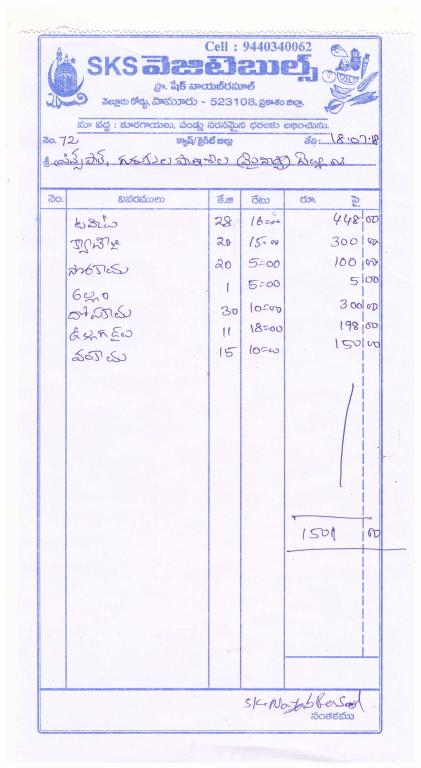 Cell : 9440340062
SKS వెజిటెబుల్స్
ప్రొ. షేక్ నాయబ్‌రసూల్
నెల్లూరు రోడ్డు, పామూరు - 523108, ప్రకాశం జిల్లా.
మా వద్ద : కూరగాయలు, పండ్లు సరసమైన ధరలకు లభించును.
నెం. 72 క్యాష్/క్రెడిట్ బిల్లు తేది: 18-07-18
శ్రీ
నెం. వివరములు కే.జి రేటు రూ. పై
టమోటా 28 16=00 448 00
క్యాబేజి 20 15=00 300 00
సొరకాయ 20 5=00 100 00
అల్లం 1 5=00 5 00
దోసకాయ 30 10=00 300 00
ఉల్లిగడ్డలు 11 18=00 198 00
15 10=00 150 00
1501 00
సంతకము